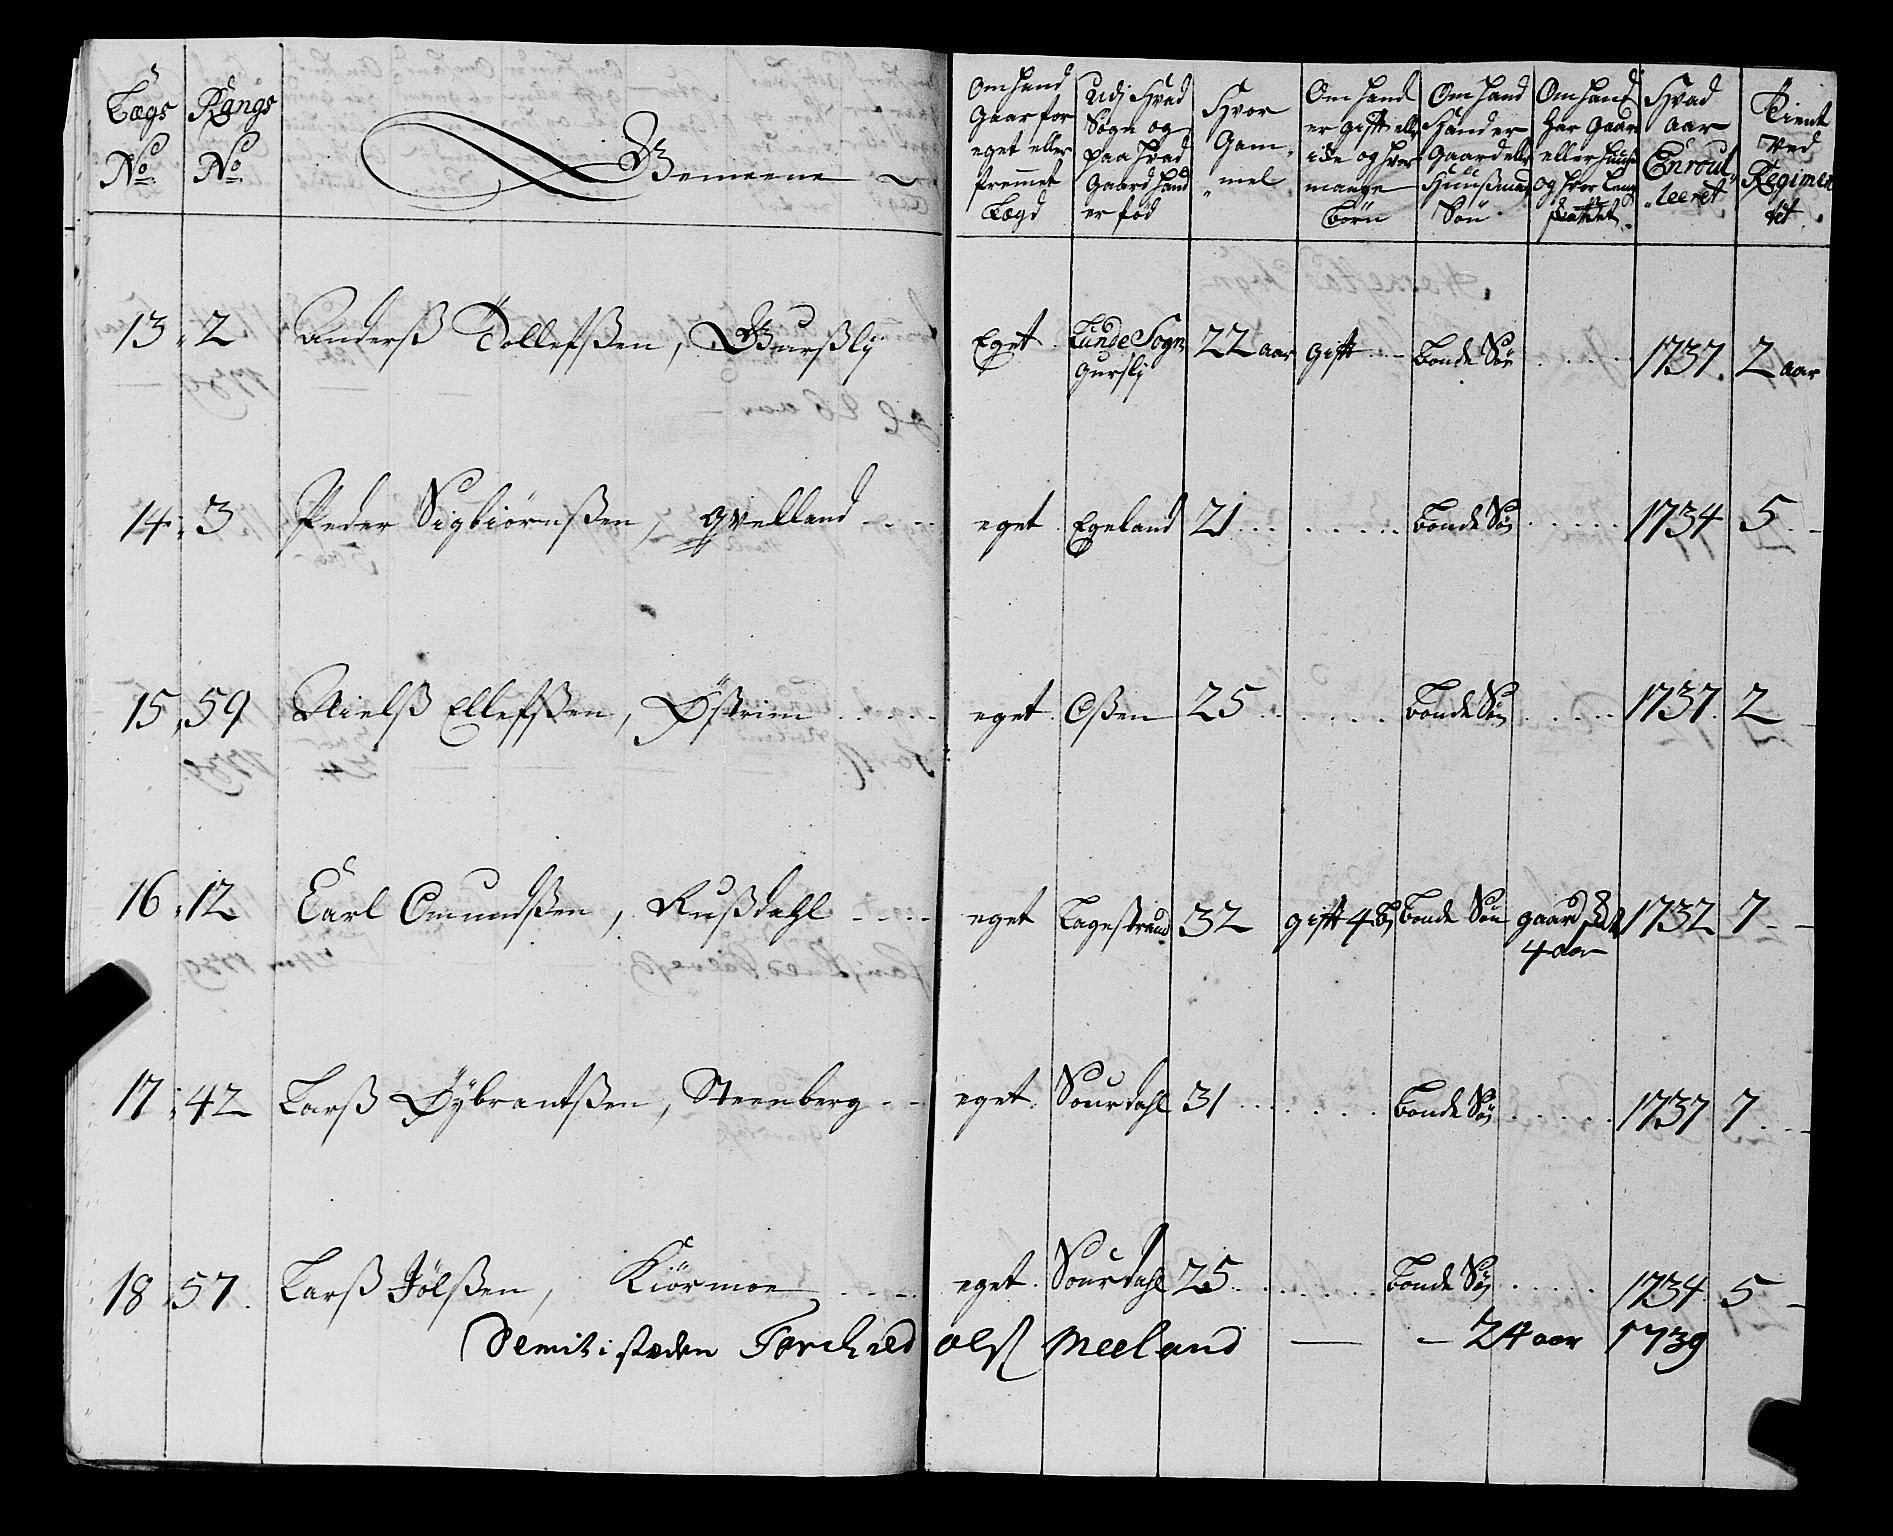 Lægs No.
Rangs No
Gemeene
Om hand Gaar for eget eller fremmet Lægd
Udj Hvad Sogn og paa hvad Gaard hand er fød
Hvor Gammel
Om hand er gift eller icke og hvor mange Børn
Om hand er Gaard eller Huußmand Søn
Om hand har Gaard eller Huus og hvor længe
Hvad aar Enroulleeret
Tient ved Regimentet
13 2 Anderß Tollefßen, Gurßlj Eget Lunde Sogn Gurslj 22 aar gift Bonde Søn 1737. 2 aar
14 3 Peder Sigbiørnßen, Qvelland eget Egeland 21 Bonde Søn 1734 5
15 59 Nielß Ellefßen, Østrim eget Oßen 25 Bonde Søn 1737. 2
16 12 Carl Omundßen, Rußdahl eget Lagestrand 32 gift 4 B Bonde Søn gaard 4 aar 1732 7
17 42 Larß Sybrantßen, Steenberg eget Sourdahl 31 Bonde Søn 1737 7
18 57. Larß Jølßen, Kiørmoe eget Sourdahl 25 Bonde Søn 1734 5
Demit i steden Torchild Olß Meeland 24 aar 1739